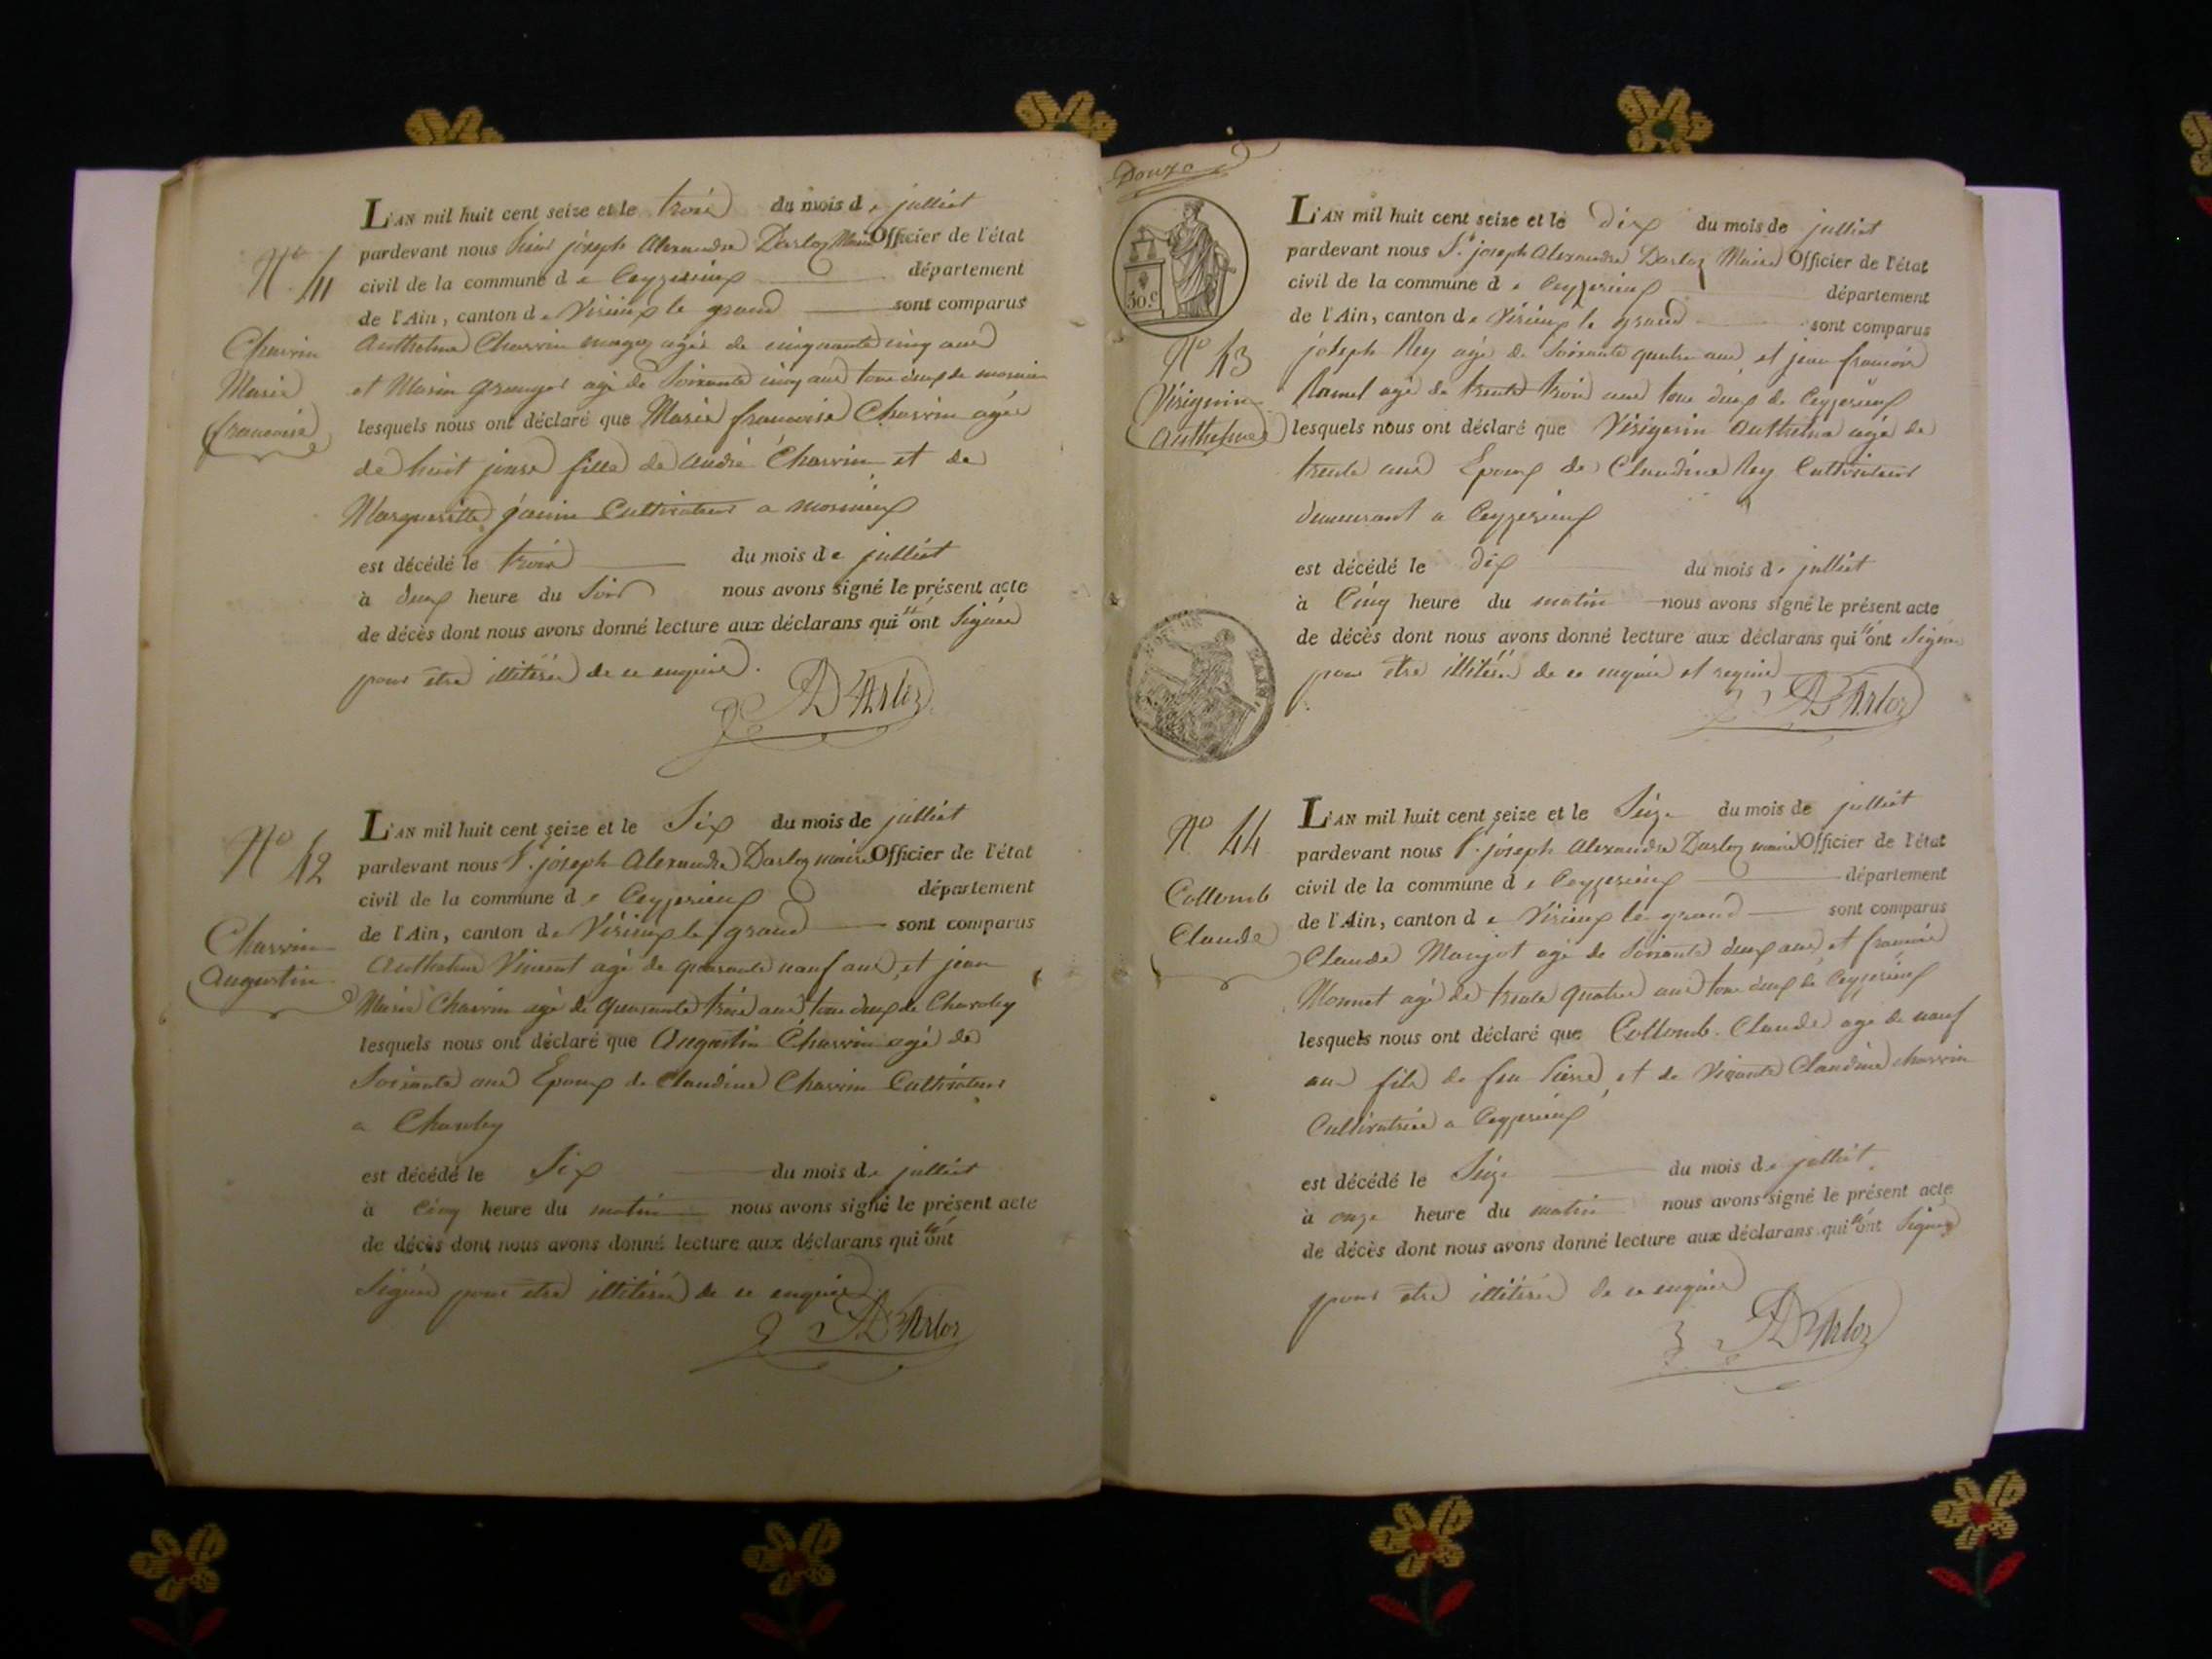 L'AN mil huit cent seize et le trois du mois de julliet
pardevant nous Sieur joseph Alexandre Darloz Maire Officier de l'état
civil de la commune de Ceyzerieux département
de l'Ain, canton de Virieux le grand sont comparus
No 41
Charvin
Marie
francoise
Anthelme Charvin agée de cinquante cinq ans
et Marin agé de Soixante cinq ans tous deux de
lesquels nous ont déclaré que Marie francoise Charvin agée
de huit jours fille de André Charvin et de
Margueritte janin Cultivateur a
est décédé le trois du mois de julliet
à deux heure du Soir nous avons signé le présent acte
de décès dont nous avons donné lecture aux déclarans qui n'ont Signés
pour etre illitérés de ce enquis.
D'Arloz
L'AN mil huit cent seize et le Six du mois de julliet
No 42
pardevant nous Sr joseph Alexandre Darloz maire Officier de l'état
civil de la commune de Ceyzerieux département
de l'Ain, canton de Virieux le grand sont comparus
Charvin
Augustin
Anthelme Vincent agé de quarante neuf ans et jean
Marie Charvin agé de quarante trois ans tous deux de Charoley
lesquels nous ont déclaré que Augustin Charvin agé de
Soixante ans Epoux de Claudine Charvin Cultivateur
a
est décédé le Six du mois de julliet
à Cinq heure du matin nous avons signé le présent acte
de décès dont nous avons donné lecture aux déclarans qui n'ont
Signés pour etre illitérés de ce enquis
D'Arloz
Douze
30.c
L'AN mil huit cent seize et le dix du mois de julliet
pardevant nous Sr joseph Alexandre Darloz Maire Officier de l'état
civil de la commune de Ceyzerieux département
de l'Ain, canton de Virieux le grand sont comparus
No 43
Virignin
Anthelme
joseph Rey agé de Soixante quatre ans et jean francois
agé de trente trois ans tous deux de Ceyzerieux
lesquels nous ont déclaré que Virignin Anthelme agé de
trente ans Epoux de Claudine Rey Cultivateur
demeurant a Ceyzerieux
est décédé le dix du mois de julliet
à Cinq heure du matin nous avons signé le présent acte
de décès dont nous avons donné lecture aux déclarans qui n'ont Signés
pour etre illitérés de ce enquis et requis
D'Arloz
L'AN mil huit cent seize et le Seize du mois de julliet
No 44
pardevant nous Sr joseph Alexandre Darloz maire Officier de l'état
civil de la commune de Ceyzerieux département
de l'Ain, canton de Virieux le grand sont comparus
Collomb
Claude
Claude Manjot agé de Soixante deux ans et francois
Monnet agé de trente quatre ans tous deux de Ceyzerieux
lesquels nous ont déclaré que Collomb Claude agé de neuf
ans fils de feu Pierre et de vivante Claudine charvin
Cultivatrice a Ceyzerieux
est décédé le Seize du mois de julliet
à onze heure du matin nous avons signé le présent acte
de décès dont nous avons donné lecture aux déclarans qui n'ont Signés
pour etre illitérés de ce enquis
D'Arloz